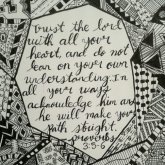 trust the lord
with all your
heart, and do not
lean on your own
understanding. In
all your ways
acknowledge him and
he will make your
path straight.
proverbs
3:5-6